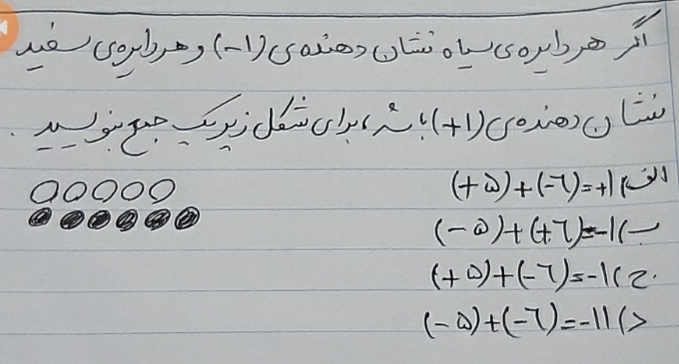 اگر هر دایره‌ی سیاه نشان دهنده‌ی (-۱) و هر دایره‌ی سفید
نشان دهنده‌ی (+۱) باشد، برای شکل زیر یک جمع بنویسید.
الف) (+۵)+(-۶)=+۱
ب) (-۵)+(+۶)=-۱
ج) (+۵)+(-۶)=-۱
د) (-۵)+(-۶)=-۱۱